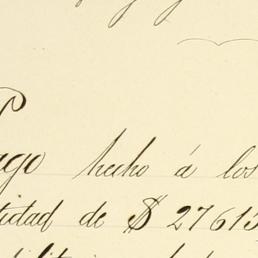 Pago hecho á los
tidad de $ 27613